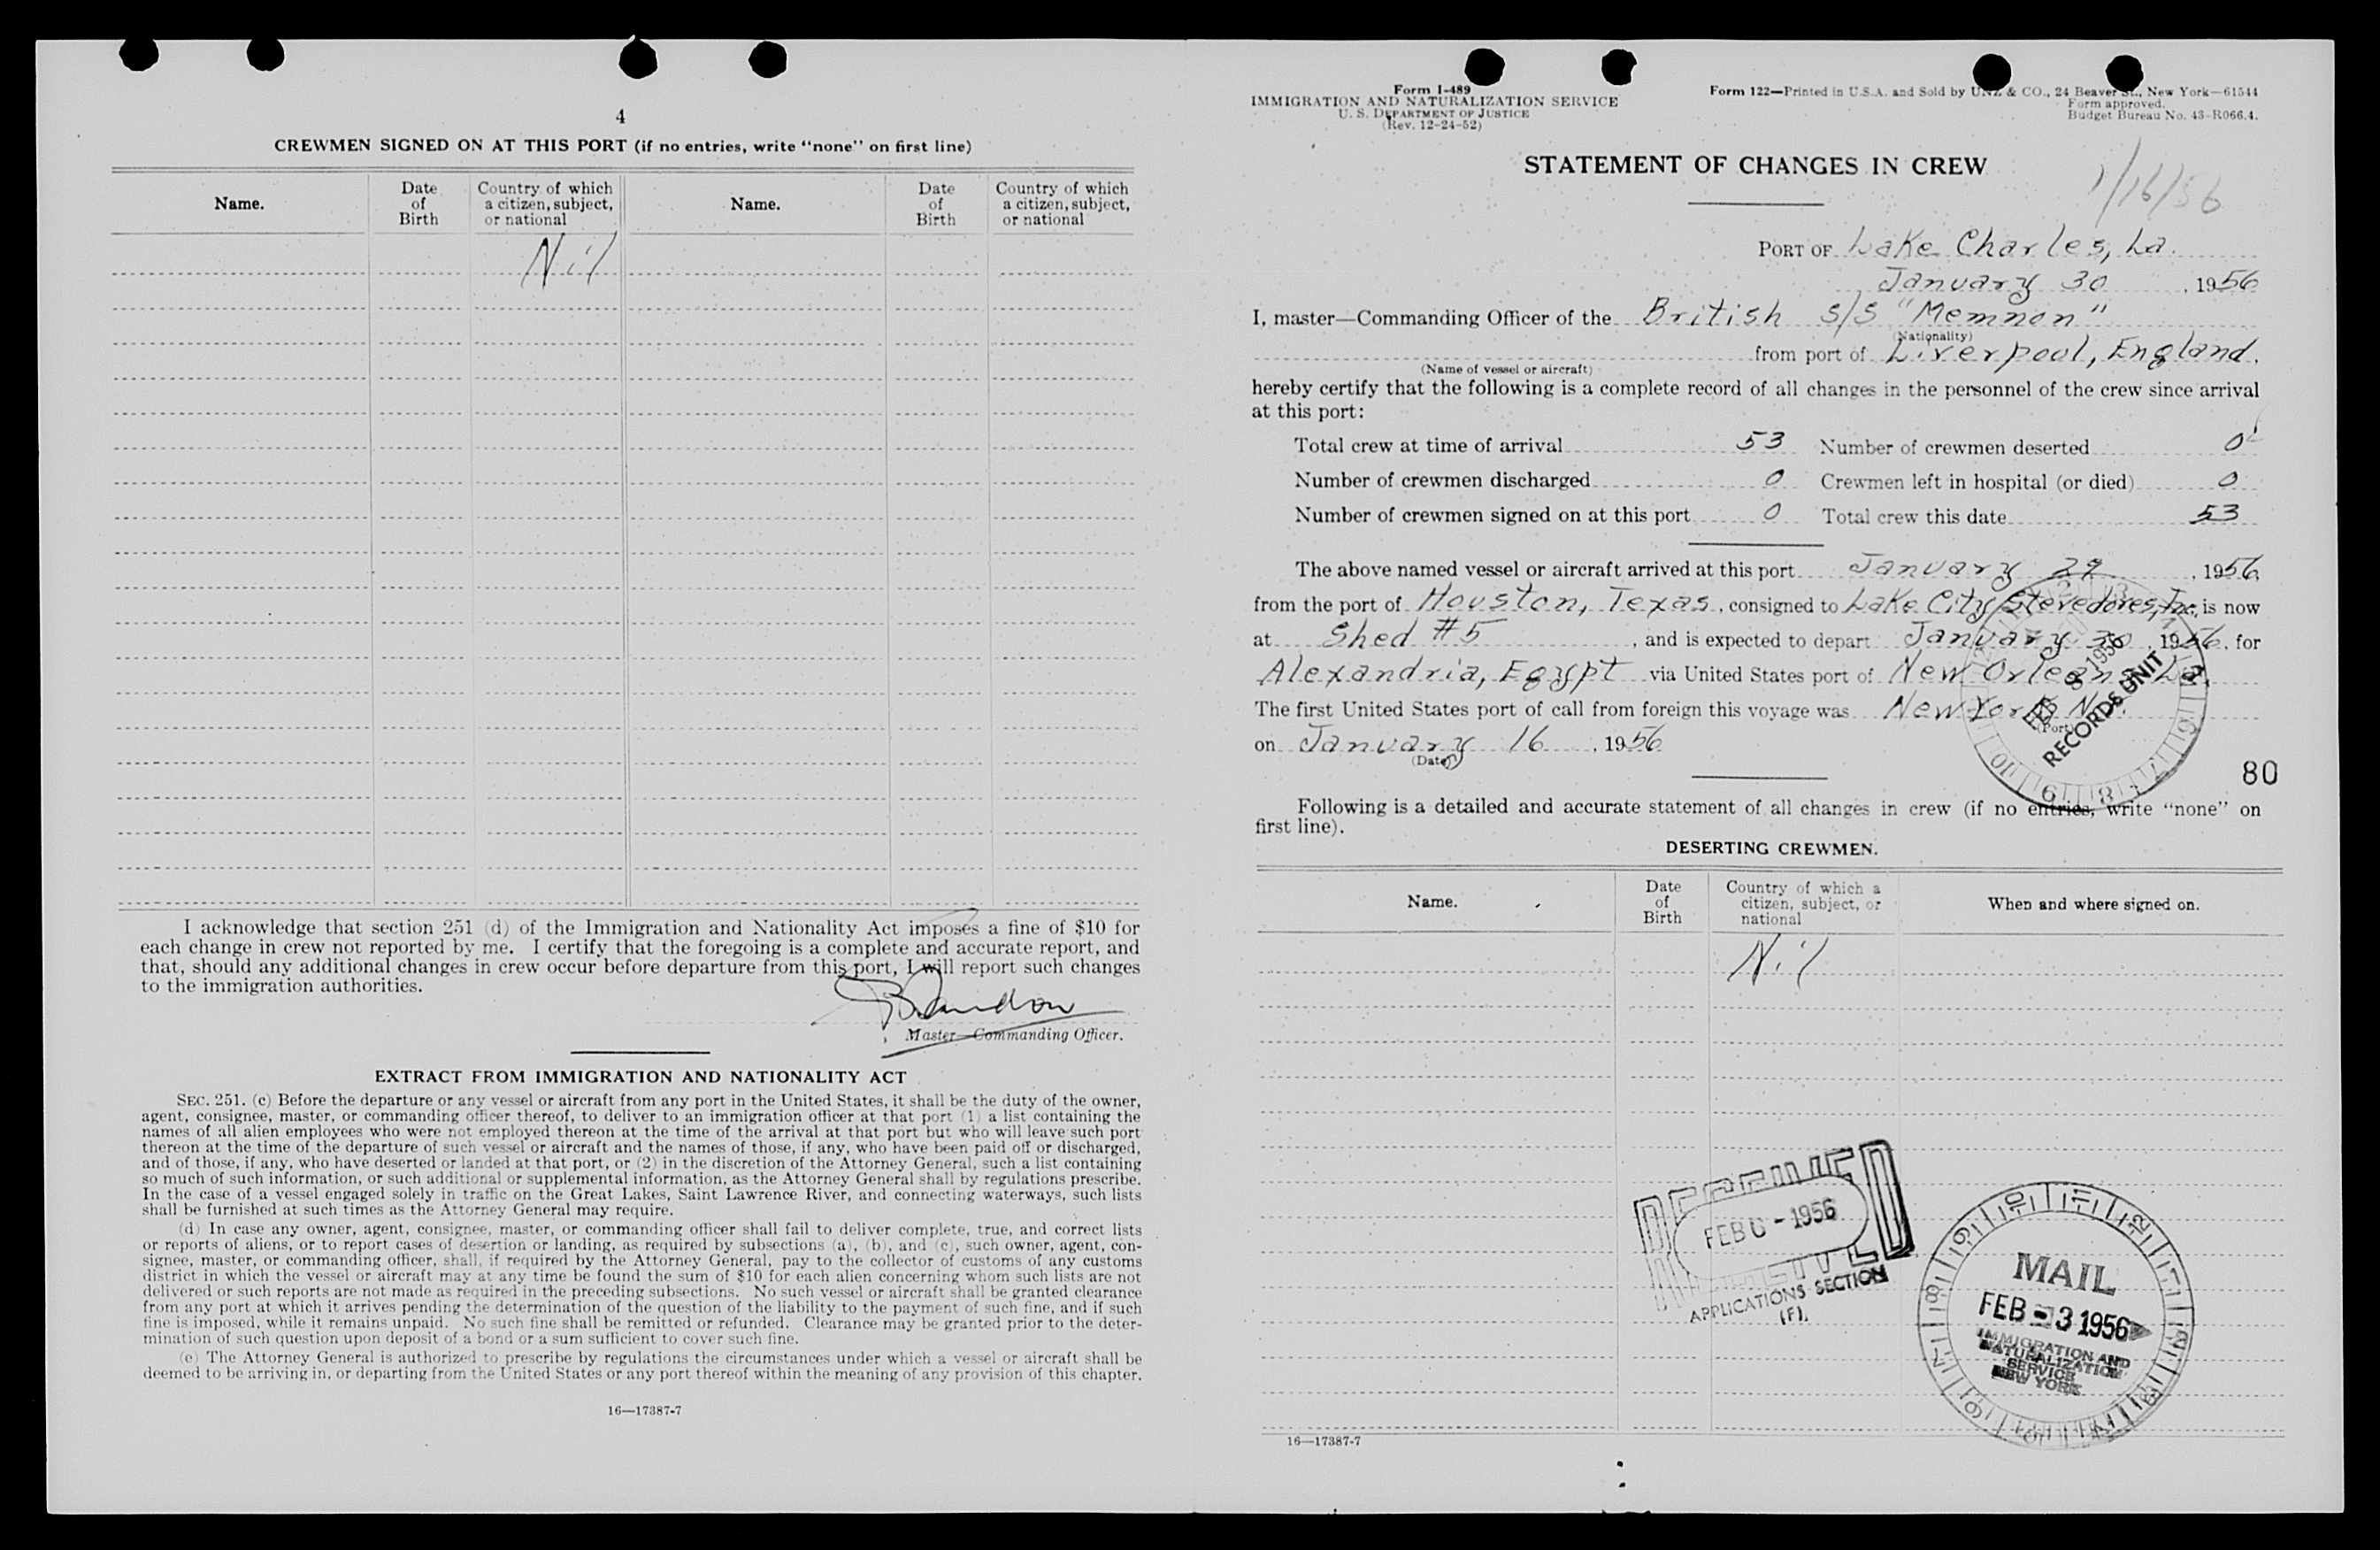 4
CREWMEN SIGNED ON AT THIS PORT (if no entries, write "none" on first line)
Name.
Date of Birth
Country of which a citizen, subject, or national
Name.
Date of Birth
Country of which a citizen, subject, or national
Nil
I acknowledge that section 251 (d) of the Immigration and Nationality Act imposes a fine of $10 for
each change in crew not reported by me. I certify that the foregoing is a complete and accurate report, and
that, should any additional changes in crew occur before departure from this port, I will report such changes
to the immigration authorities.
Master—Commanding Officer.
EXTRACT FROM IMMIGRATION AND NATIONALITY ACT
SEC. 251. (c) Before the departure or any vessel or aircraft from any port in the United States, it shall be the duty of the owner,
agent, consignee, master, or commanding officer thereof, to deliver to an immigration officer at that port (1) a list containing the
names of all alien employees who were not employed thereon at the time of the arrival at that port but who will leave such port
thereon at the time of the departure of such vessel or aircraft and the names of those, if any, who have been paid off or discharged,
and of those, if any, who have deserted or landed at that port, or (2) in the discretion of the Attorney General, such a list containing
so much of such information, or such additional or supplemental information, as the Attorney General shall by regulations prescribe.
In the case of a vessel engaged solely in traffic on the Great Lakes, Saint Lawrence River, and connecting waterways, such lists
shall be furnished at such times as the Attorney General may require.
(d) In case any owner, agent, consignee, master, or commanding officer shall fail to deliver complete, true, and correct lists
or reports of aliens, or to report cases of desertion or landing, as required by subsections (a), (b), and (c), such owner, agent, con-
signee, master, or commanding officer, shall, if required by the Attorney General, pay to the collector of customs of any customs
district in which the vessel or aircraft may at any time be found the sum of $10 for each alien concerning whom such lists are not
delivered or such reports are not made as required in the preceding subsections. No such vessel or aircraft shall be granted clearance
from any port at which it arrives pending the determination of the question of the liability to the payment of such fine, and if such
fine is imposed, while it remains unpaid. No such fine shall be remitted or refunded. Clearance may be granted prior to the deter-
mination of such question upon deposit of a bond or a sum sufficient to cover such fine.
(e) The Attorney General is authorized to prescribe by regulations the circumstances under which a vessel or aircraft shall be
deemed to be arriving in, or departing from the United States or any port thereof within the meaning of any provision of this chapter.
16—17387-7
Form I-489
IMMIGRATION AND NATURALIZATION SERVICE
U. S. DEPARTMENT OF JUSTICE
(Rev. 12-24-52)
Form 122—Printed in U.S.A. and Sold by UNZ & CO., 24 Beaver St., New York—61544
Form approved.
Budget Bureau No. 43-R066.4.
STATEMENT OF CHANGES IN CREW
1/16/56
PORT OF Lake Charles, La.
January 30, 1956
I, master—Commanding Officer of the British S/S "Memnon"
(Nationality)
from port of Liverpool, England.
(Name of vessel or aircraft)
hereby certify that the following is a complete record of all changes in the personnel of the crew since arrival
at this port:
Total crew at time of arrival 53 Number of crewmen deserted 0
Number of crewmen discharged 0 Crewmen left in hospital (or died) 0
Number of crewmen signed on at this port 0 Total crew this date 53
The above named vessel or aircraft arrived at this port January 29, 1956,
from the port of Houston, Texas, consigned to Lake City Stevedores, Inc, is now
at Shed #5, and is expected to depart January 30, 1956, for
Alexandria, Egypt via United States port of New Orleans, La.
The first United States port of call from foreign this voyage was New York N.Y.
(Port)
on January 16, 1956
(Date)
FEB 8 1956
RECORDS UNIT
80
Following is a detailed and accurate statement of all changes in crew (if no entries, write "none" on
first line).
DESERTING CREWMEN.
Name.
Date of Birth
Country of which a citizen, subject, or national
When and where signed on.
Nil
RECEIVED
FEB 6 - 1956
APPLICATIONS SECTION
(F).
MAIL
FEB - 3 1956
IMMIGRATION AND
NATURALIZATION
SERVICE
NEW YORK
16—17387-7